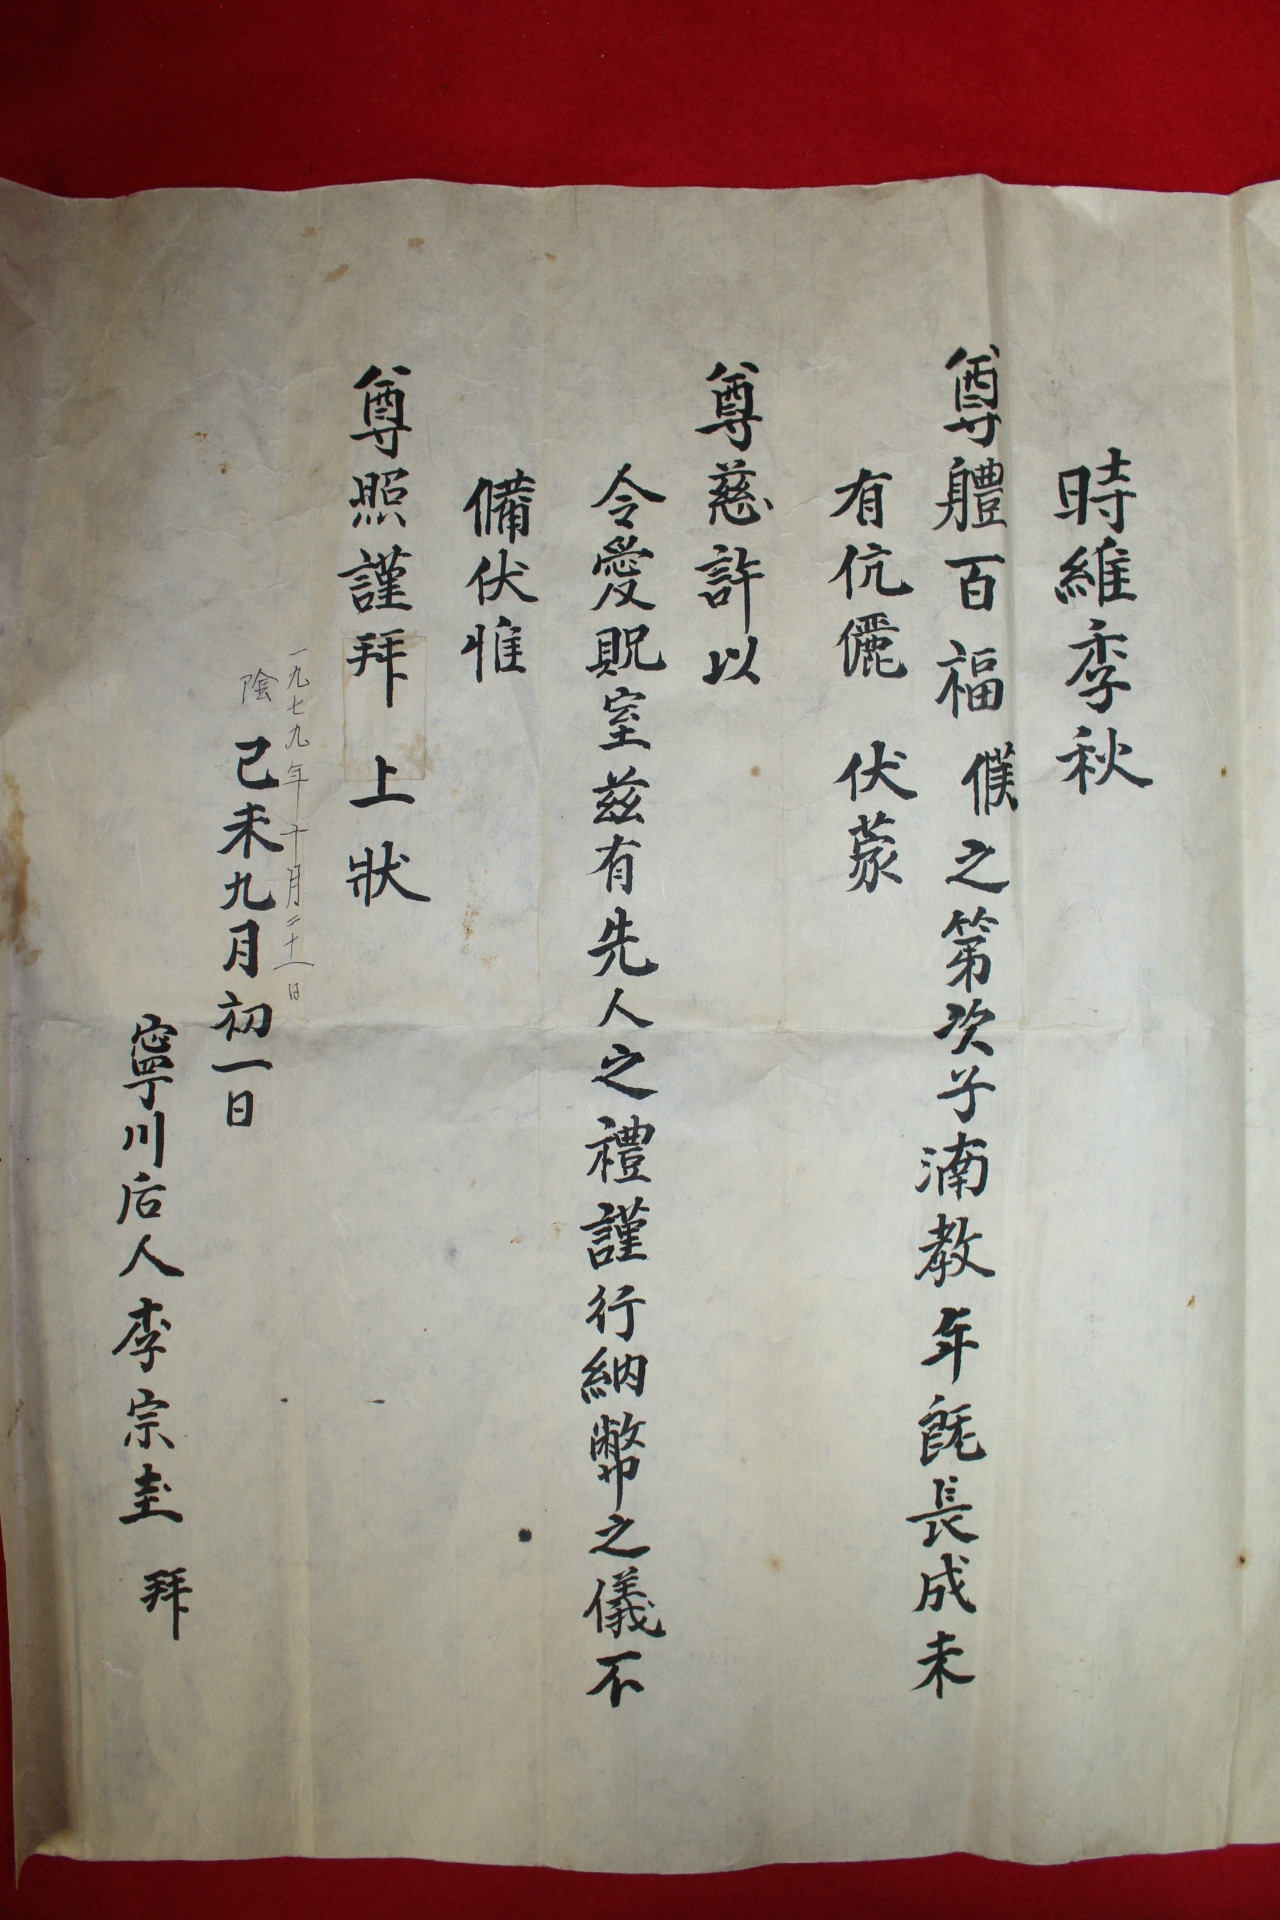 時維季秋
尊體百福 僕之第次子湳教年旣長成未
有伉儷 伏蒙
尊慈許以
令愛貺室玆有先人之禮謹行納幣之儀不
備伏惟
尊照謹拜 上狀
一九七九年十月二十一日
陰 己未九月初一日
寧川后人李宗圭 拜